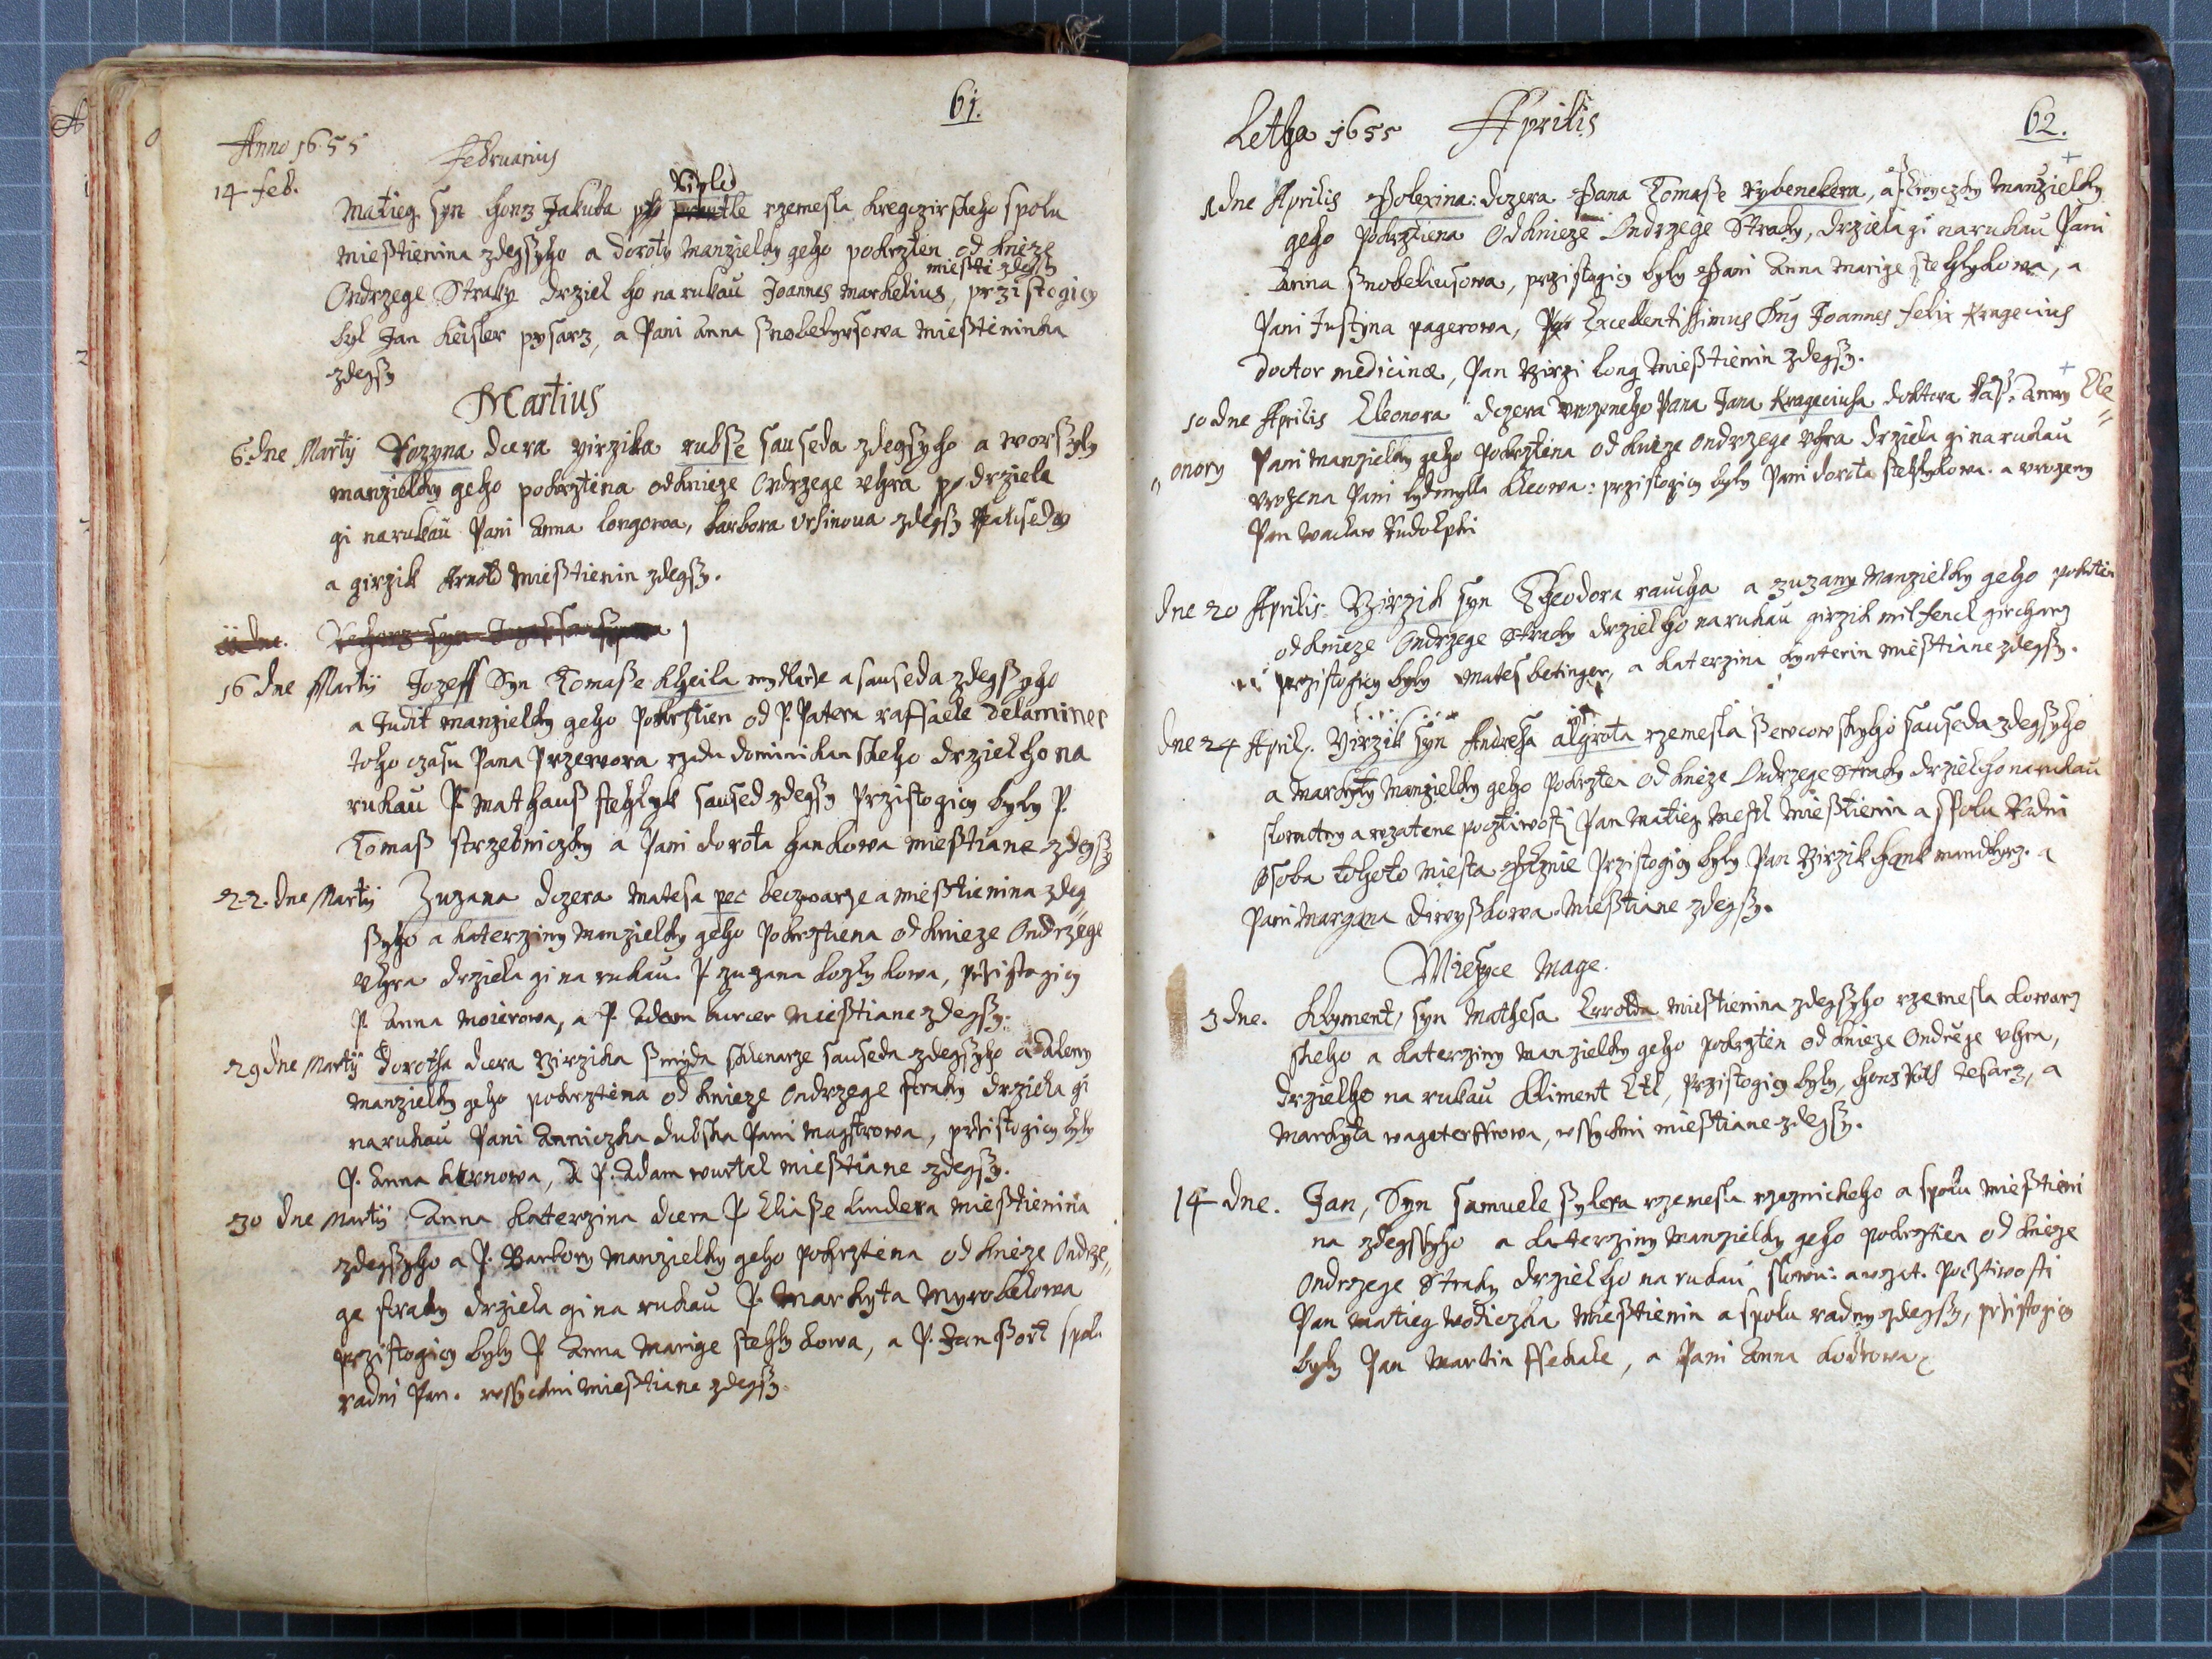 61.
Anno 1655 Februarius
14 feb.
Matieg syn honz Jakuba rzemesla kregczirskeho spolu
miesstienina zdegssyho a doroty manzielky geho pokrzten od knieze
miessti zdegss
Ondrzege Straky drziel ho na rukau Joannes markelius, przistogicy
byl Jan keisler pysarz, a Pani Anna snobelyusowa miesstieninka
zdegssy
Martius
6. dne Martij Rozyna dcera yirzika rubsse sauseda zdegssyho a worssyly
manzielky geho pokrztena od knieze Ondrzege Uhra drziela
gi na rukau Pani Anna longowa, barbora Ursinoua zdegssy
a girzik Arnold miesstienin zdegssy.
16 dne Martij Jozeff Syn Tomasse kheila mydlarze a sauseda zdegssyho
a Judit manzielky geho pokrztien od P. Patera raffaele Delaminer
toho czasu Pana Przewora rzadu dominikanskeho drziel ho na
rukau P. Mathauss stehlyk saused zdegssy Przistogicy byly P.
Tomass strzebniczky a Pani dorota hankowa miesstiane zdegssy
22. dne Martij Zuzana dczera Matesa pec beczwarze a miesstienina zdeg
ssyho a katerziny manzielky geho pokrztiena od knieze Ondrzege
Uhra drziela gi na rukau P. zuzana kozlykowa, przistogicy
P. Anna moierowa, a P. Adam burcer miesstiane zdegssy.
29 dne Martij Dorotha dcera Girzika ssmyda sklenarze sauseda zdegssyho a Aleny
manzielky geho pokrztena od knieze Ondrzege straky drziela gi
na rukau Pani Anniczka dubska Pani magstrowa, przistogicy byly
P. Anna kornowa, a P. Adam wurtzl miesstiane zdegssy.
30 dne Martij Anna Katerzina dcera P. Eliasse kundera miesstienina
zdegssyho a P. Barbory manzielky geho pokrztena od knieze Ondrze,,
ge straky drziela gi na rukau P. Markyta Myrobelowa
przistogicy byly P. Anna marige stehlykowa, a P. Jan ssort spolu
radni Pan. wssyckni miesstiane zdegssy.
62.
Letha 1655 Aprilis
1 dne Aprilis Polexina: dczera Pana Tomasse rybenekera, a manzielky
geho pokrztiena od knieze Ondrzege Straky, drziela gi na rukau Pani
Anna snobeliusowa, przistogicy byly Pani Anna marige stehlykowa, a
Pani Justyna pagerowa, Excellentissimus Joannes felix Kragecius
doctor medicinæ, Pan Girzi long miesstienin zdegssy.
10 dne Aprilis Eleonora dczera urozeneho Pana Jana Krageciusa doktora Ele
,,onory Pani manzielky geho pokrztena od knieze Ondrzege Uhra drziela gi na rukau
urozena Pani lydmylla kleowa: przistogicy byly Pani dorota stehlykowa. a urozeny
Pan waclaw Rudolphi
dne 20 Aprilis Girzik syn Theodora raucha a zuzany manzielky geho pokrzten
od knieze Ondrzege Straky drziel ho na rukau girzik milfenck girchgarz
przistogicy byly Mates betinger, a katerzina kynterin miesstiane zdegssy.
dne 24 April. Girzik syn Andresa algrota rzemesla ssewcowskyho sauseda zdegssyho
a Markyty manzielky geho pokrzten od knieze Ondrzege Straky drziel ho na rukau
slowutny a wzatene pocztiwosti Pan Matieg Mesl miesstienin a spolu Radni
osoba tohoto miesta Przistogicy byly Pan Girzik hank mandlyrz. a
Pani Margana diwysskowa miesstiane zdegssy.
Miesyce Mage.
3 dne. Klyment, syn Mathesa Errolda miesstienina zdegssyho rzemesla kowarz
skeho a katerziny manzielky geho pokrzten od knieze Ondrege Uhra,
drziel ho na rukau kliment Ekl, przistogicy byly, honz Roth tesarz, a
Markyta wageterffrowa, wssyckni miesstiane zdegssy.
14 dne. Jan, Syn Samuele sylera rzemesla rzeznickeho a spolu miesstieni
na zdegssyho a katerziny manzielky geho pokrztien od knieze
Ondrzege Straky drziel ho na rukau slowu: a wzat. pocztiwosti
Pan Matieg wodiczka miesstienin a spolu radny zdegssy, przistogicy
byly Pan Martin ffekale, a Pani Anna kodrowa